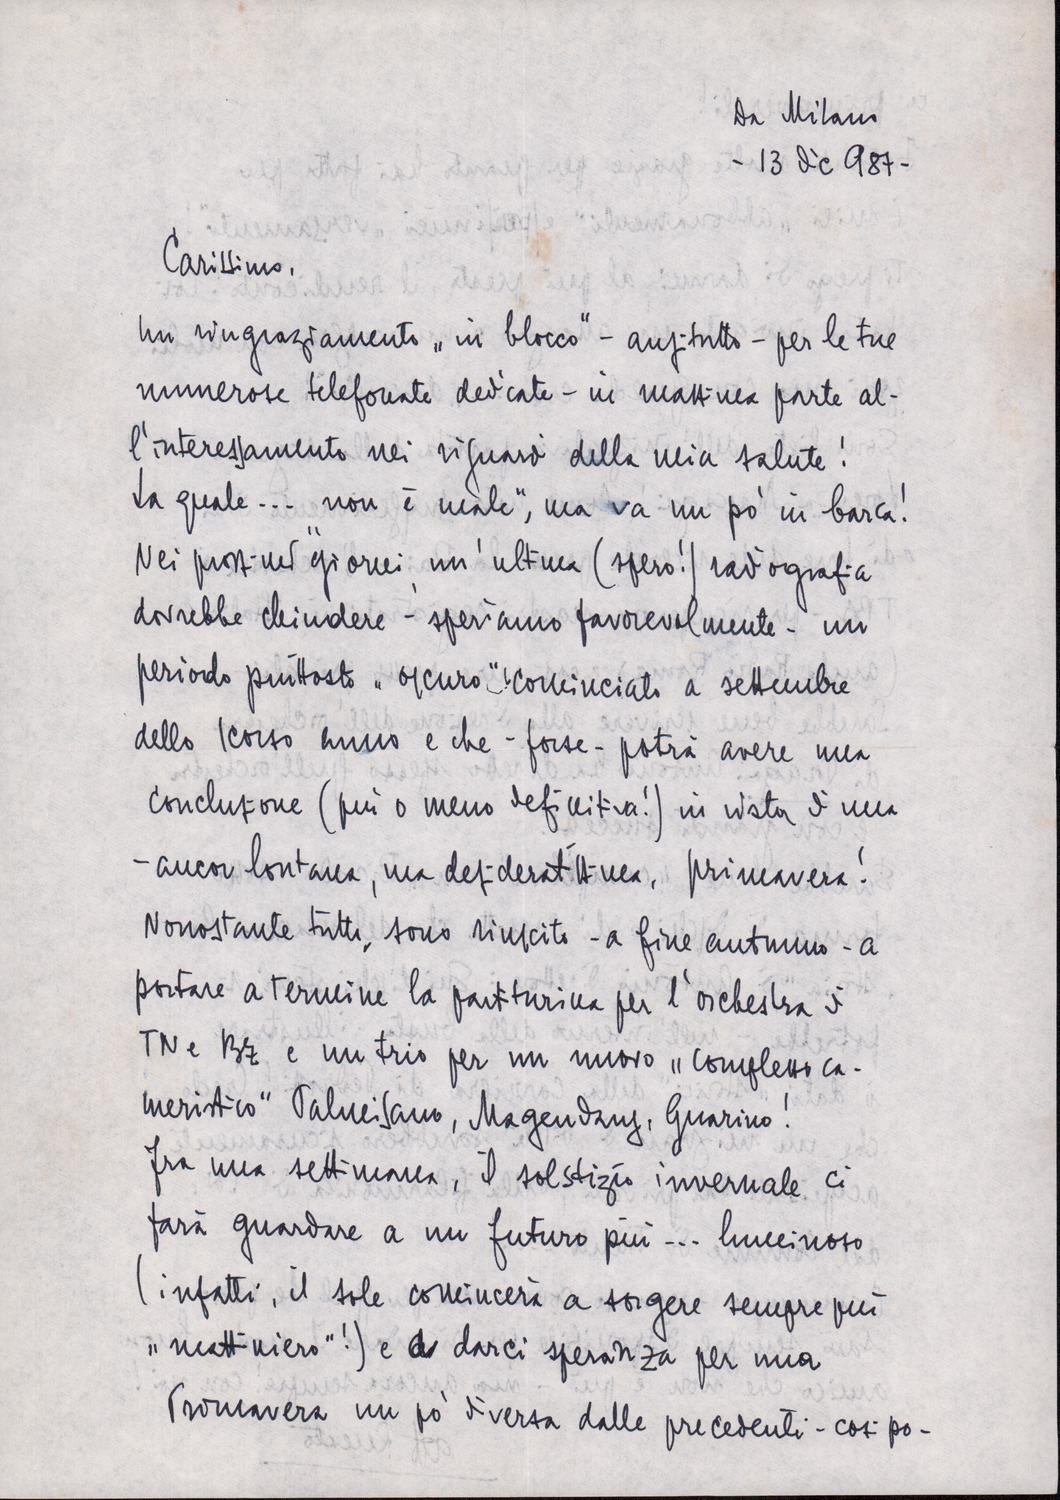 Da Milano
- 13 dic 987-
Carissimo,
un ringraziamento „in blocco" - anzitutto - per le tue
numerose telefonate dedicate - in massima parte al-
l'interessamento nei riguardi della mia salute!
La quale... non è male", ma va un pò in barca!
Nei prossimi "giorni, un'ultima (spero!) radiografia
dovrebbe chiudere - speriamo favorevolmente - un
periodo piuttosto „oscuro"! cominciato a settembre
dello scorso anno e che - forse - potrà avere una
conclusione (più o meno definitiva!) in vista di una
- ancor lontana, ma desideratissima, primavera!
Nonostante tutto, sono riuscito - a fine autunno - a
portare a termine la partiturina per l'orchestra di
TN e BZ e un trio per un nuovo „complesso ca-
meristico" Palmisano, Magendanz, Guarino!
Fra una settimana, il solstizio invernale ci
farà guardare a un futuro più... luminoso
(infatti, il sole comincerà a sorgere sempre più
„mattiniero"!) e a darci speranza per una
Primavera un pò diversa dalle precedenti - così po-